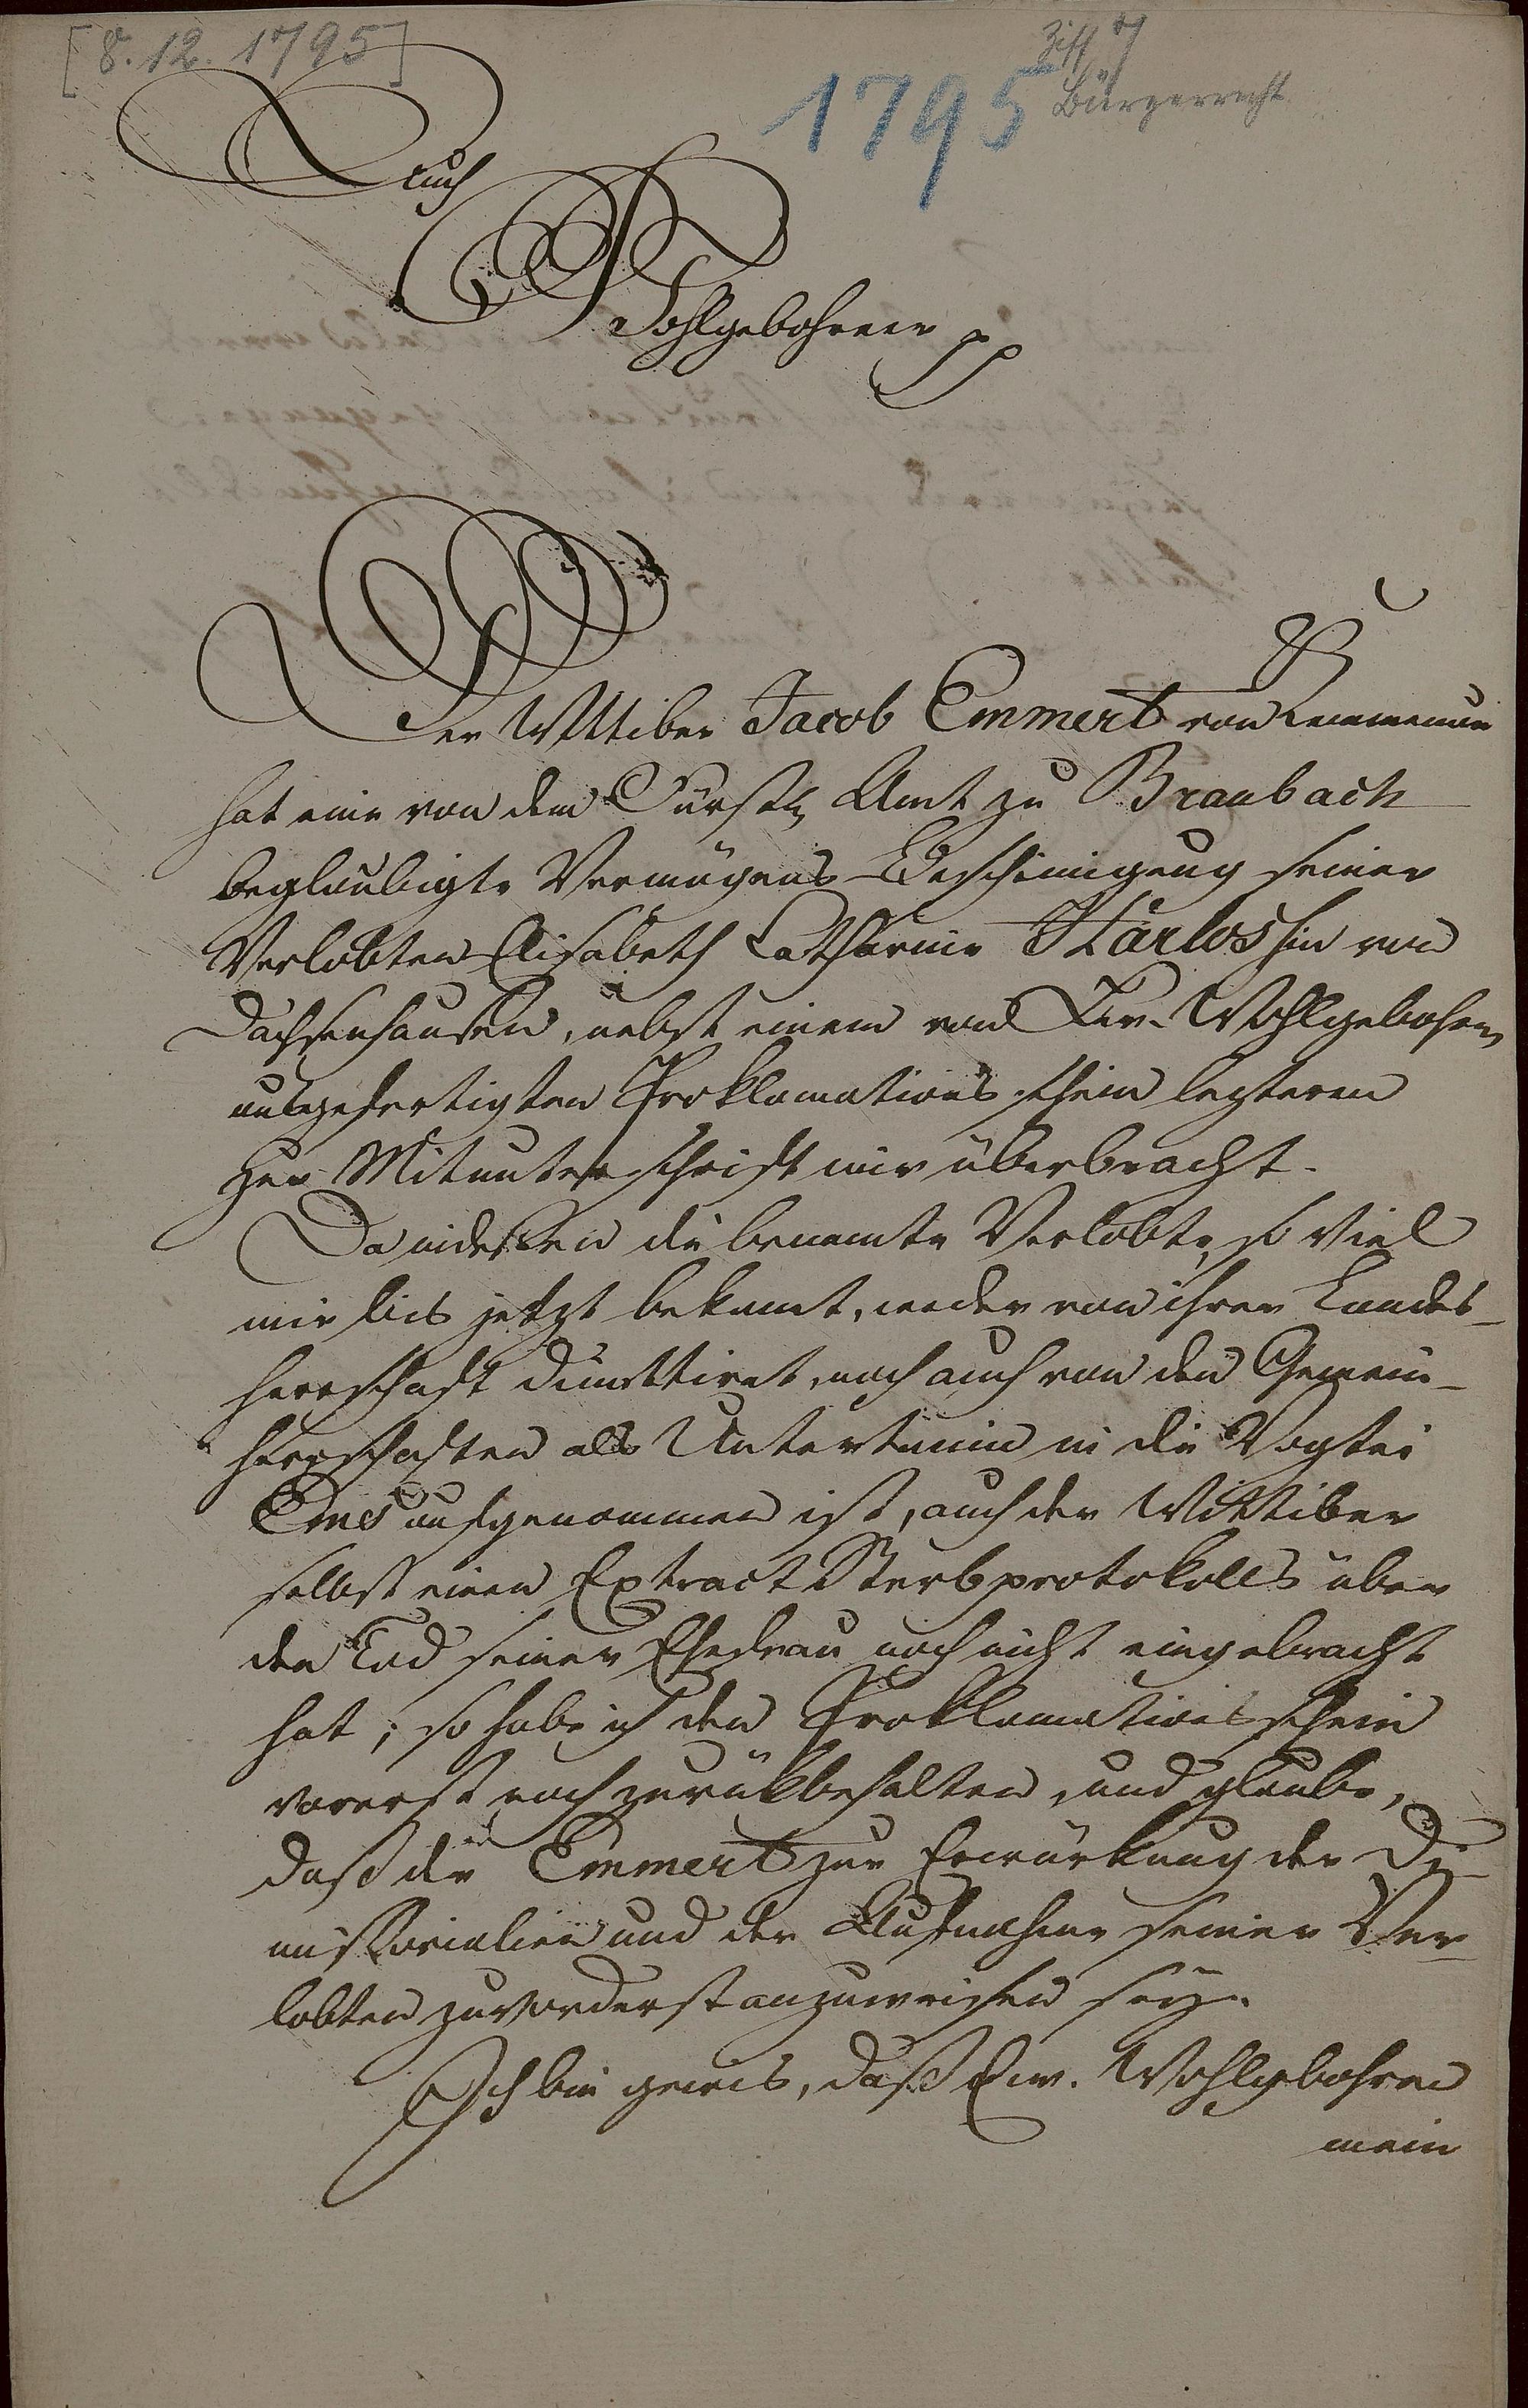 [8.12.1795]
Ziff 7
1795 Bürgerrecht
Auch
Wohlgebohrner pp
Der Wittiber Jacob Emmert von Kemmenau
hat eine von dem Fürstl. Amt zu Braubach
beglaubigte Vermögens Bescheinigung seiner
Verlobten Elisabeth Catharine Härlossin von
Dachsenhausen, nebst einem von Ew. Wohlgebohrn
ausgefertigten Proklamations schein lezteren
zur Mitunterschrift mir überbracht.
Da indessen die benamte Verlobte, so viel
mir bis jetzt bekannt, weder von ihrer Landes-
herrschaft dimittiret, noch auch von den Gemein-
herrschaften als Untertanin in die Vogtei
Ems aufgenommen ist, auch der Wittiber
selbst einen Extract Sterbprotokolls über
den Tod seiner Ehefrau noch nicht eingebracht
hat; so habe ich den Proklamationsschein
vorerst noch zurükbehalten, und glaube,
daß der Emmert zur Erwürkung der Di-
missorialien und der Aufnahme seiner Ver-
lobten zuvorderst anzuweisen sey.
Ich bin gewis, daß Ew. Wohlgebohren
mein